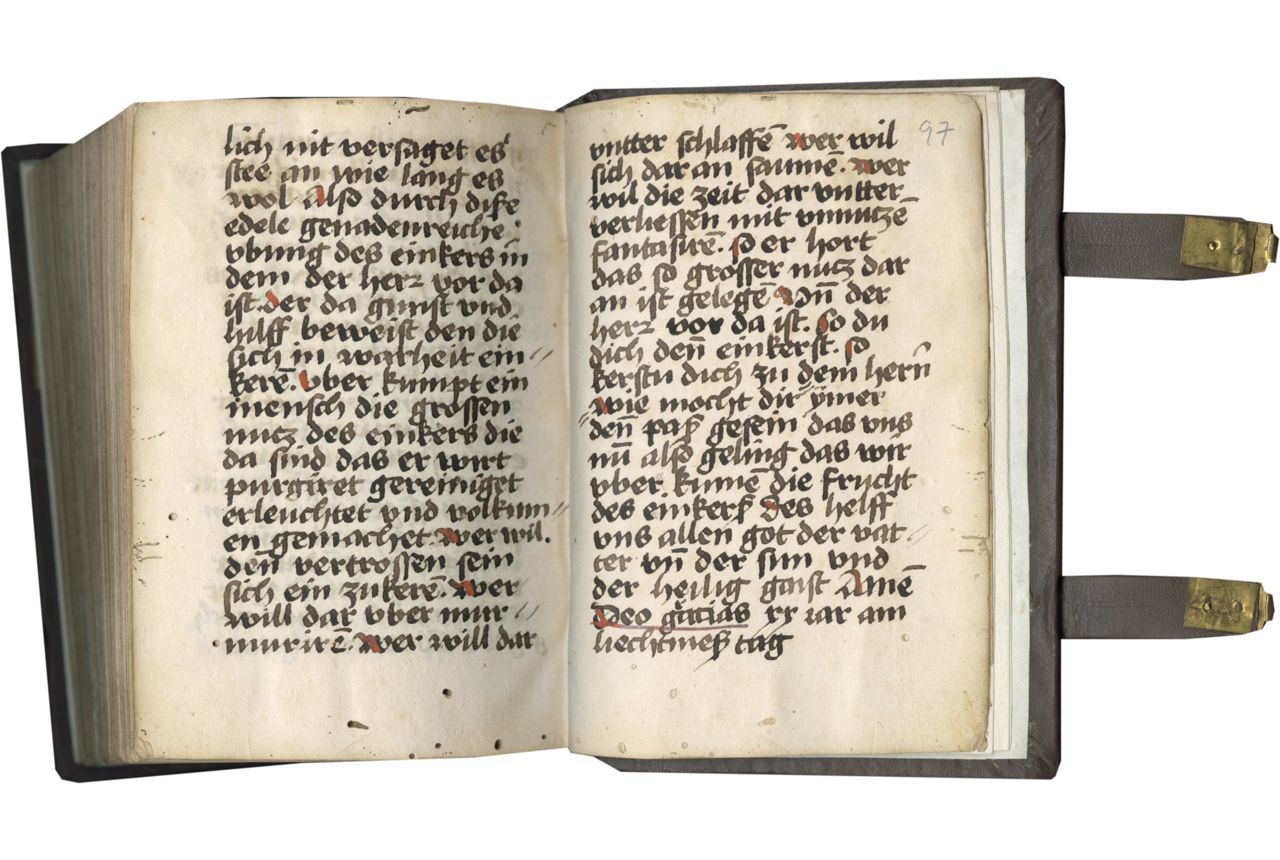 lich nit versaget es
stee an wie lang es
wol Also durch dise
edele genadenreiche
vbung des einkers in
dem der herz vor da
ist. der da gunst vnd
hilff beweist den die
sich in warheit ein〃
kerē. vber kumpt ein
mensch die grossen
nutz des einkers die
da sind das er wirt
purgiret gereiniget
erleuchtet vnd volkum〃
en gemachet. wer wil.
den̄ vertrossen sein
sich ein zukerē. wer
will dar vber mur〃
murirē. wer will dar
97
vntter schlaffē wer wil
sich dar an saumē. wer
wil die zeit dar vntter
verliessen mit vnnutzē
fantasirē. so er hort
das so grosser nutz dar
an ist gelegē Vn̄ der
herz vor da ist. So du
dich den̄ einkerst. so
kerstu dich zu dem hern̄
wie mocht dir ymer
den̄ paß gesein das vns
nū also geling das wir
vber kumē die frucht
des einkerß Des helff
vns allen got der vat〃
ter vn̄ der sun vnd
der heilig gaist Amē
Deo gr̄acias xx iar am
liechtmeß tag